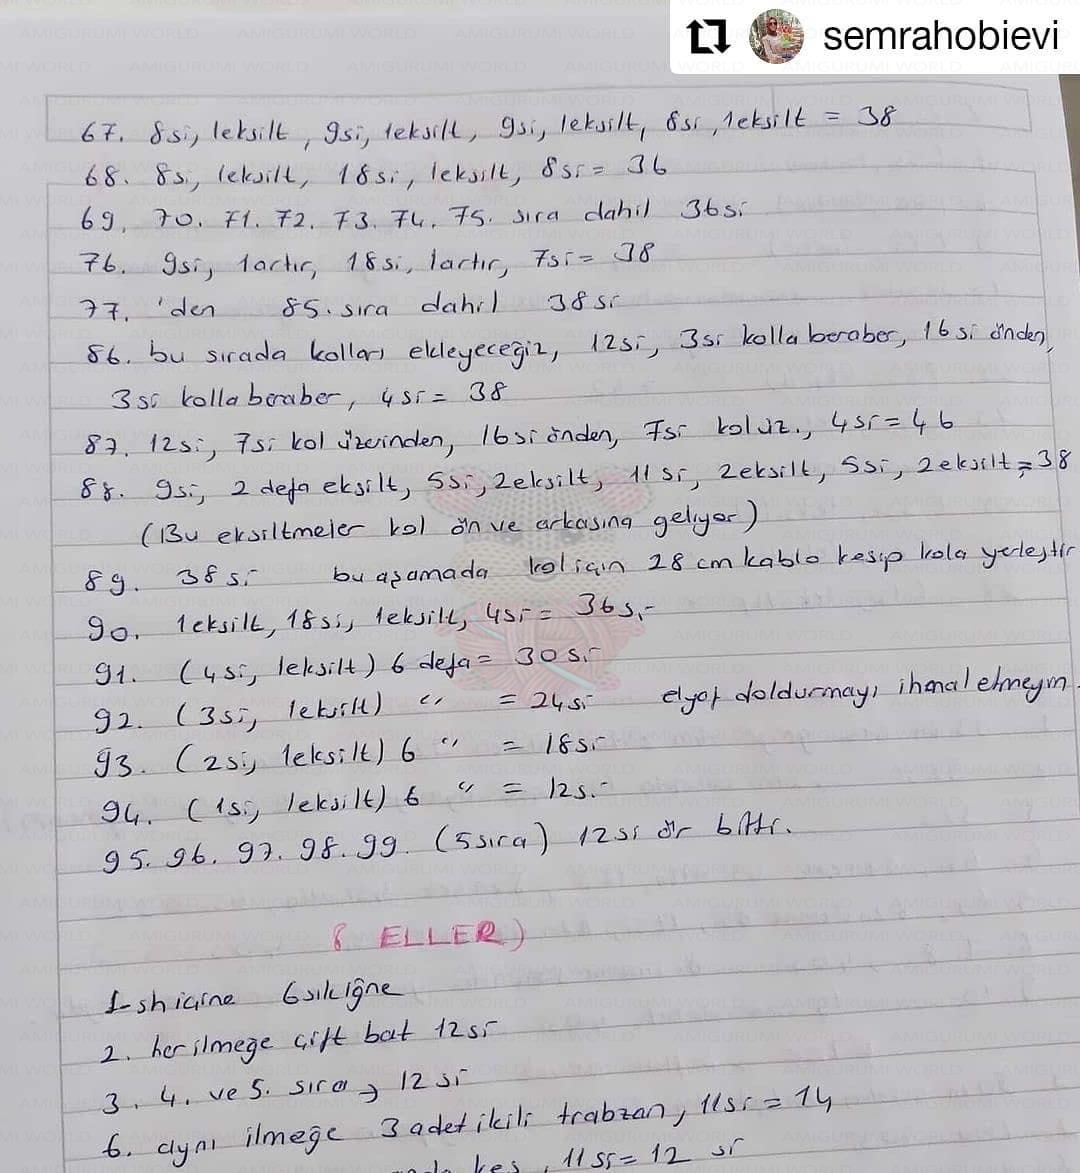 semrahobievi
67. 8si, 1eksilt, 9si, 1eksilt, 9si, 1eksilt, 8si, 1eksilt = 38
68. 8si, 1eksilt, 18si, 1eksilt, 8si = 36
69. 70. 71. 72. 73. 74. 75. sıra dahil 36si
76. 9si, 1artır, 18si, 1artır, 7si = 38
77. 'den 85. sıra dahil 38si
86. bu sırada kolları ekleyeceğiz, 12si, 3si kolla beraber, 16si önden,
3si kolla beraber, 4si = 38
87. 12si, 7si kol üzerinden, 16si önden, 7si kol üz., 4si = 46
88. 9si, 2 defa eksilt, 5si, 2eksilt, 11si, 2eksilt, 5si, 2eksilt = 38
(Bu eksiltmeler kol ön ve arkasına geliyor)
89. 38si bu aşamada kol için 28 cm kablo kesip kola yerleştir
90. 1eksilt, 18si, 1eksilt, 4si = 36si
91. (4si, 1eksilt) 6 defa = 30si
92. (3si, 1eksilt) " = 24si elyaf doldurmayı ihmal etmeyin.
93. (2si, 1eksilt) 6 " = 18si
94. (1si, 1eksilt) 6 " = 12si
95. 96. 97. 98. 99. (5sıra) 12si ör bitir.
( ELLER )
1- sh içine 6sık iğne
2. her ilmeğe çift bat 12si
3. 4. ve 5. sıra, 12si
6. aynı ilmeğe 3 adet ikili trabzan, 11si = 14
kes, 11si = 12 si
AMIGURUMI WORLD